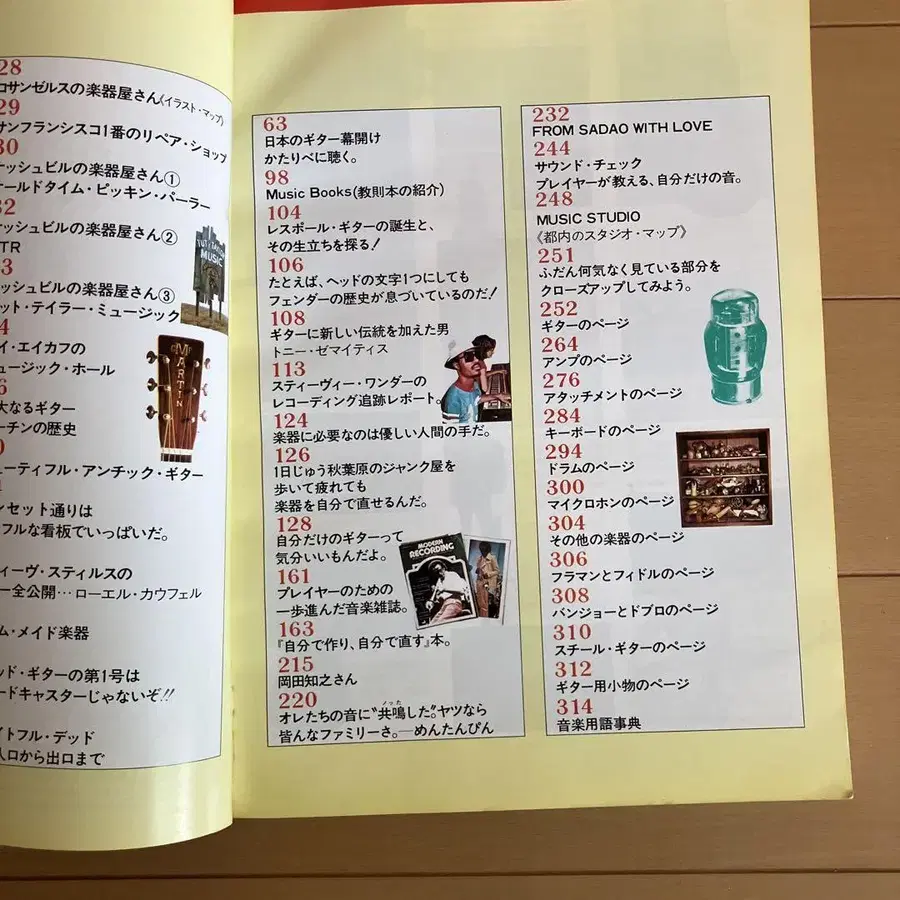 28
コサンゼルスの楽器屋さん(イラスト・マップ)
29
サンフランシスコ1番のリペア・ショップ
30
ナッシュビルの楽器屋さん①
オールドタイム・ピッキン・パーラー
32
ナッシュビルの楽器屋さん②
TR
3
ッシュビルの楽器屋さん③
ット・テイラー・ミュージック
4
イ・エイカフの
ュージック・ホール
6
大なるギター
ーチンの歴史
ューティフル・アンチック・ギター
ンセット通りは
フルな看板でいっぱいだ。
ィーヴ・スティルスの
ー全公開…ローエル・カウフェル
ム・メイド楽器
ッド・ギターの第1号は
ードキャスターじゃないぞ!!
イトフル・デッド
人口から出口まで
MUSIC
MARTIN
63
日本のギター幕開け
かたりべに聴く。
98
Music Books(教則本の紹介)
104
レスポール・ギターの誕生と、
その生立ちを探る!
106
たとえば、ヘッドの文字1つにしても
フェンダーの歴史が息づいているのだ!
108
ギターに新しい伝統を加えた男
トニー・ゼマイティス
113
スティーヴィー・ワンダーの
レコーディング追跡レポート。
124
楽器に必要なのは優しい人間の手だ。
126
1日じゅう秋葉原のジャンク屋を
歩いて疲れても
楽器を自分で直せるんだ。
128
自分だけのギターって
気分いいもんだよ。
161
プレイヤーのための
一歩進んだ音楽雑誌。
MODERN
RECORDING
163
『自分で作り、自分で直す』本。
215
岡田知之さん
220
オレたちの音に"共鳴した"。ヤツなら
ノッた
皆んなファミリーさ。—めんたんぴん
232
FROM SADAO WITH LOVE
244
サウンド・チェック
プレイヤーが教える、自分だけの音。
248
MUSIC STUDIO
《都内のスタジオ・マップ》
251
ふだん何気なく見ている部分を
クローズアップしてみよう。
252
ギターのページ
264
アンプのページ
276
アタッチメントのページ
284
キーボードのページ
294
ドラムのページ
300
マイクロホンのページ
304
その他の楽器のページ
306
フラマンとフィドルのページ
308
バンジョーとドブロのページ
310
スチール・ギターのページ
312
ギター用小物のページ
314
音楽用語事典